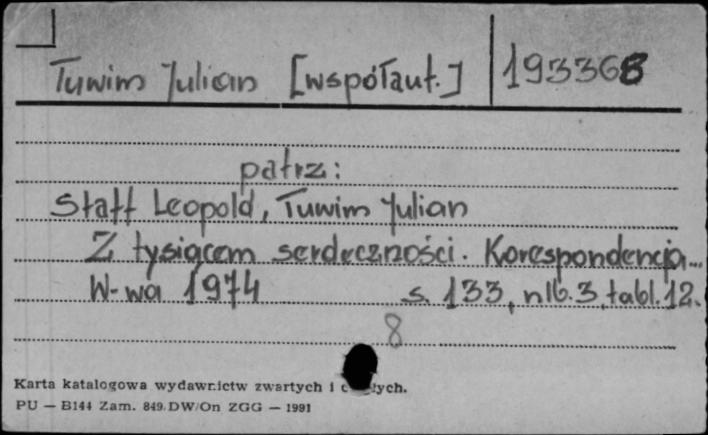 Tuwim Julian [współaut.] 193368
patrz:
Staff Leopold, Tuwim Julian
Z tysiącem serdeczności. Korespondencja...
W-wa 1974 s. 133, nlb. 3, tabl. 12.
8
Karta katalogowa wydawnictw zwartych i
PU — B144 Zam. 849/DW/On ZGG — 1991